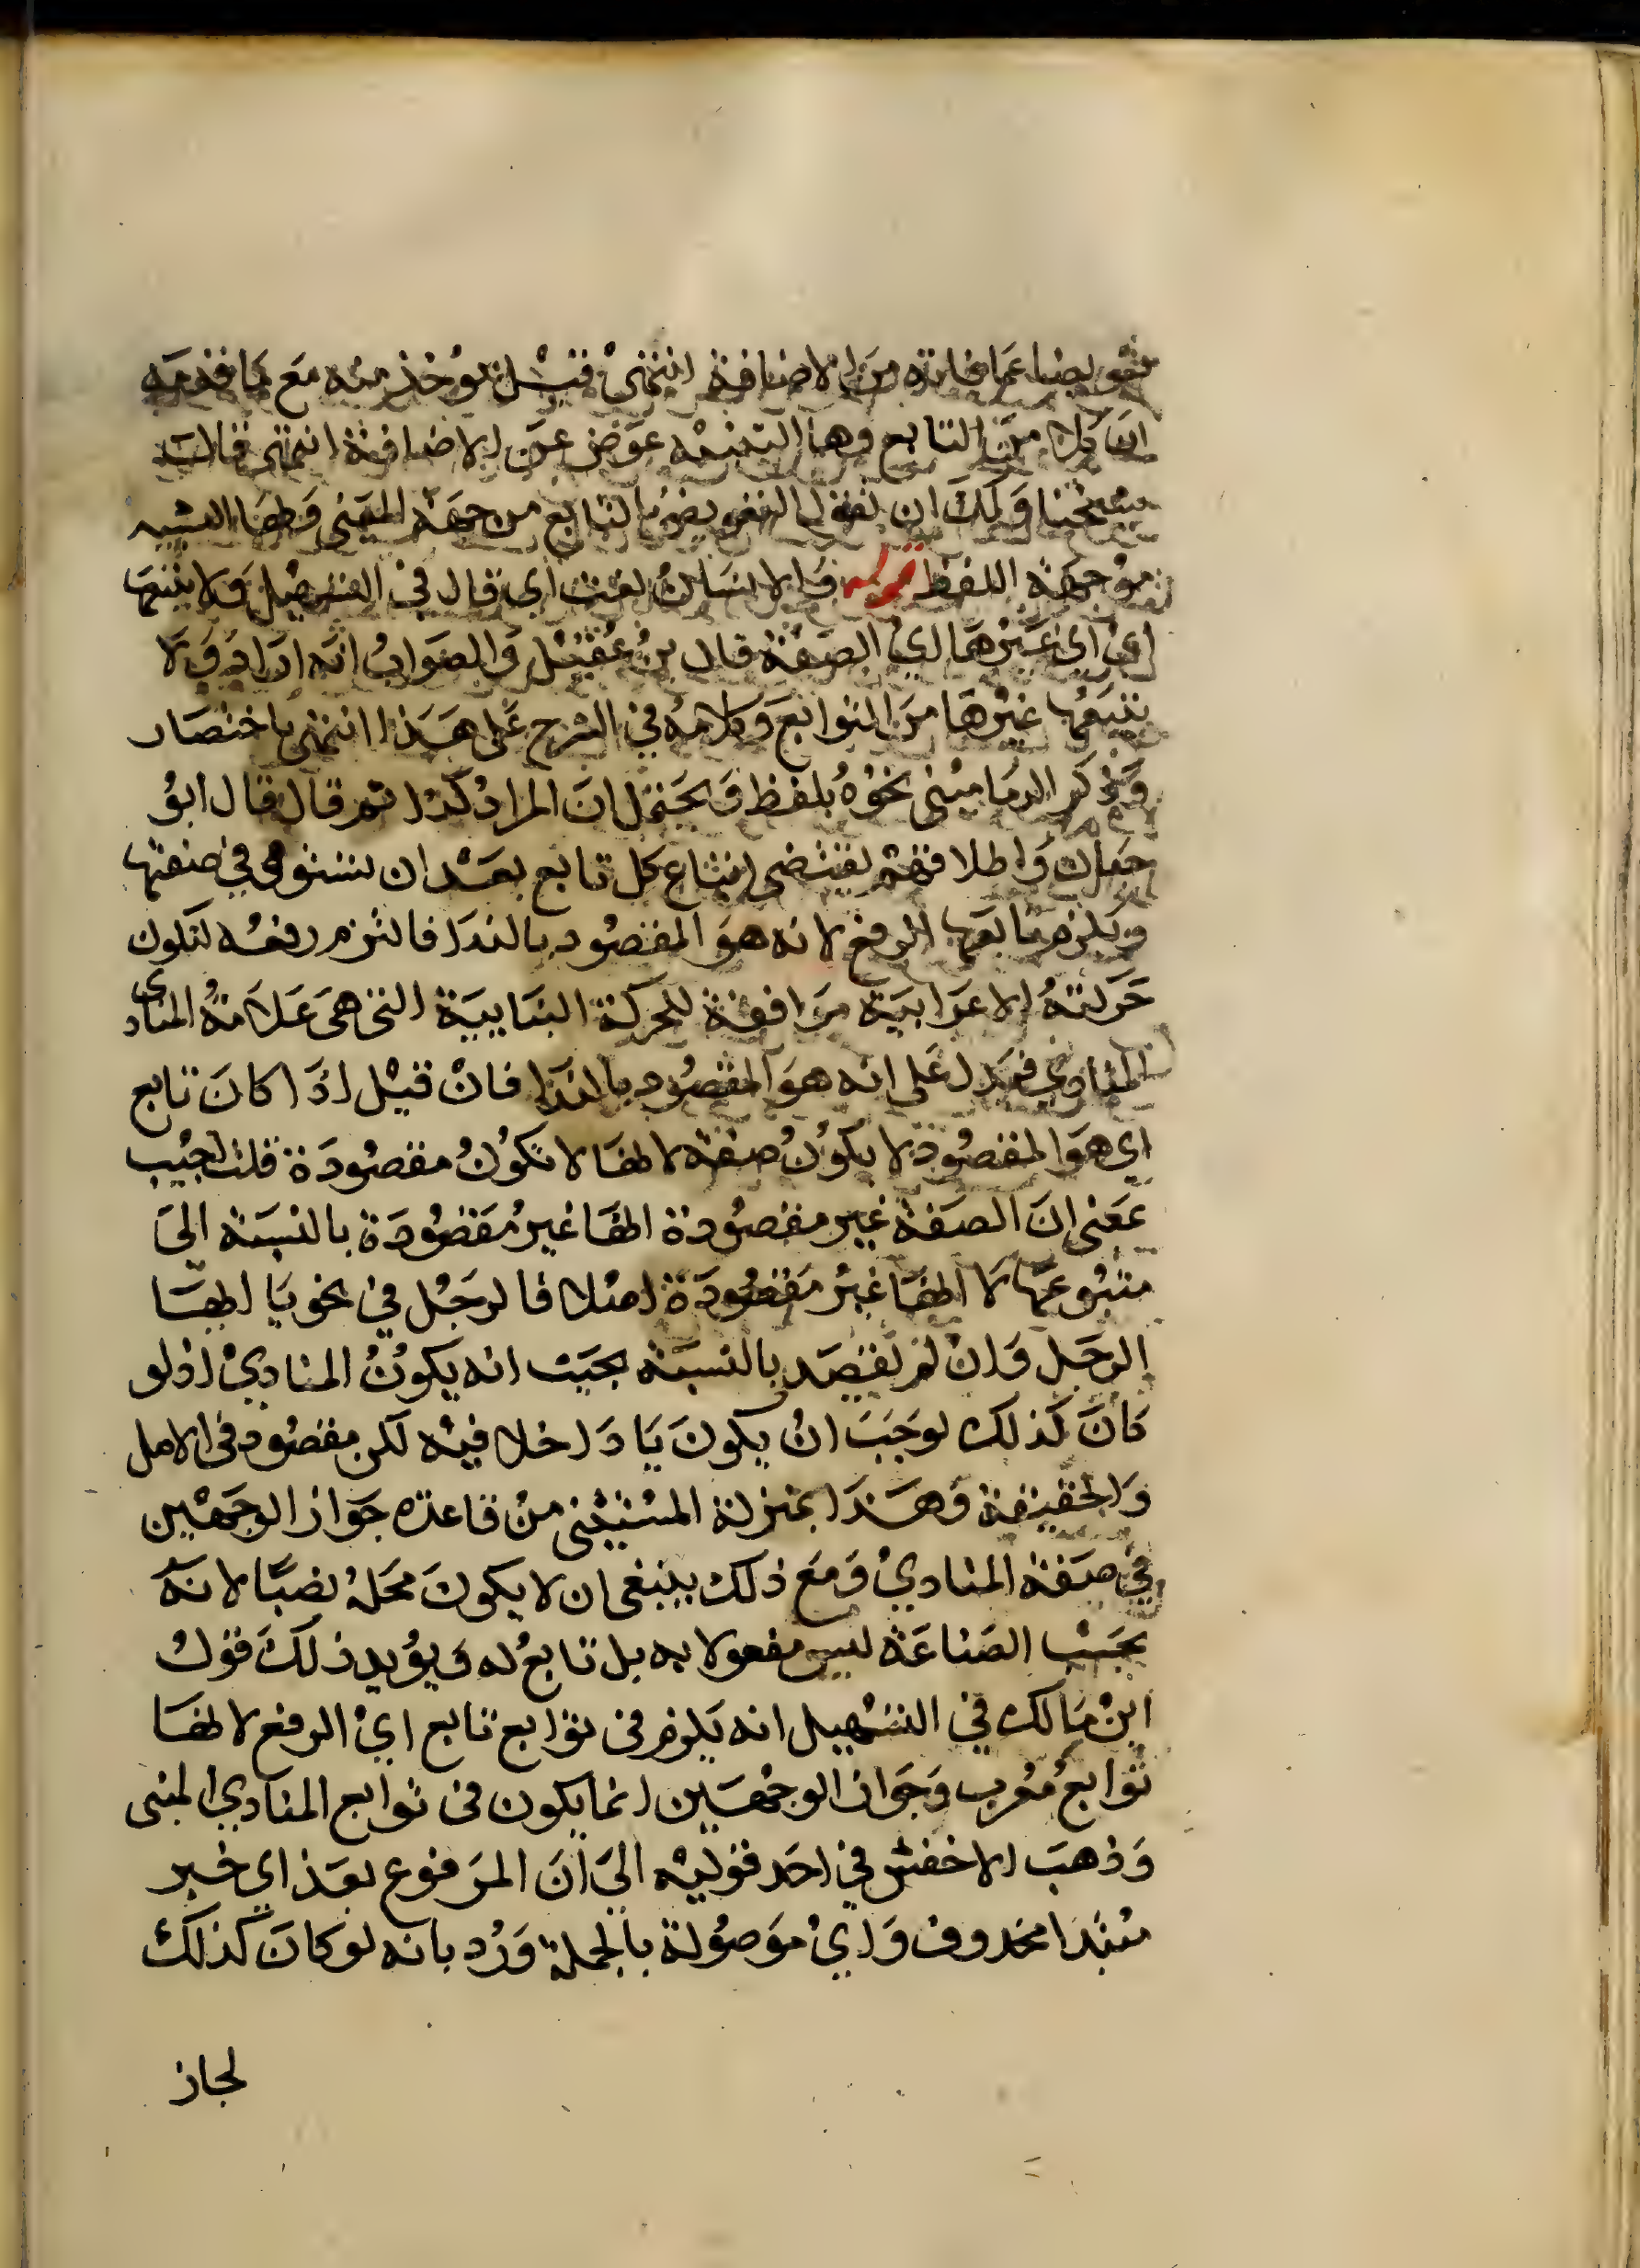 تعويضا عما فاته من الاضافة انتهى قيل يوخذ منه مع ما قدمه
ان كلا من التابع وها التنبيه عوض عن الاضافة انتهى قال
شيخنا ولك ان تقول التعويض بالتابع من جهة المعنى وبها التنبيه
من جهة اللفظ قوله فالانسان نعت اى قال في التسهيل ولا يتبعها
اى اى غيرها اي الصفة قال بن عقيل والصواب انه اراد ولا
يتبعها غيرها من التوابع وكلامه في الشرح على هذا انتهى باختصار
وذكر الدماميني نحوه بلفظ ويحتمل ان المراد كذا ثم قال قال ابو
حيان واطلاقهم يقتضى امتناع كل تابع بعد ان تستوفى في صفتها
ويلزم تابعها الرفع لانه هو المقصود بالندا فالتزم رفعه لتكون
حركته الاعرابية موافقة للحركة البنايية التى هى علامة المنادى
المنادي فيدل على انه هو المقصود بالندا فان قيل اذا كان تابع
اي هو المقصود لا يكون صفة لانها لا تكون مقصودة قلت اجيب
معنى ان الصفة غير مقصودة انها غير مقصودة بالنسبة الى
متبوعها لا انها غير مقصودة اصلا فالرجل في نحو يا ايها
الرجل وان لم يقصد بالنسبة بحيث انه يكون المنادي اذ لو
كان كذلك لوجب ان يكون يا داخلا فيه لكن مقصود فى الاصل
والحقيقة وهذا بمنزلة المستثنى من قاعدة جواز الوجهين
في صفة المنادي ومع ذلك ينبغى ان لا يكون محله نصبا لانه
بحسب الصناعة ليس مفعولا به بل تابع له ويؤيد ذلك قول
ابن مالك في التسهيل انه يلزم فى توابع تابع اي الرفع لانها
توابع معرب وجواز الوجهين انما يكون فى توابع المنادي المبنى
وذهب الاخفش في احد قوليه الى ان المرفوع بعد اي خبر
مبتدا محذوف واي موصولة بالجملة ورد بانه لو كان كذلك
لجاز